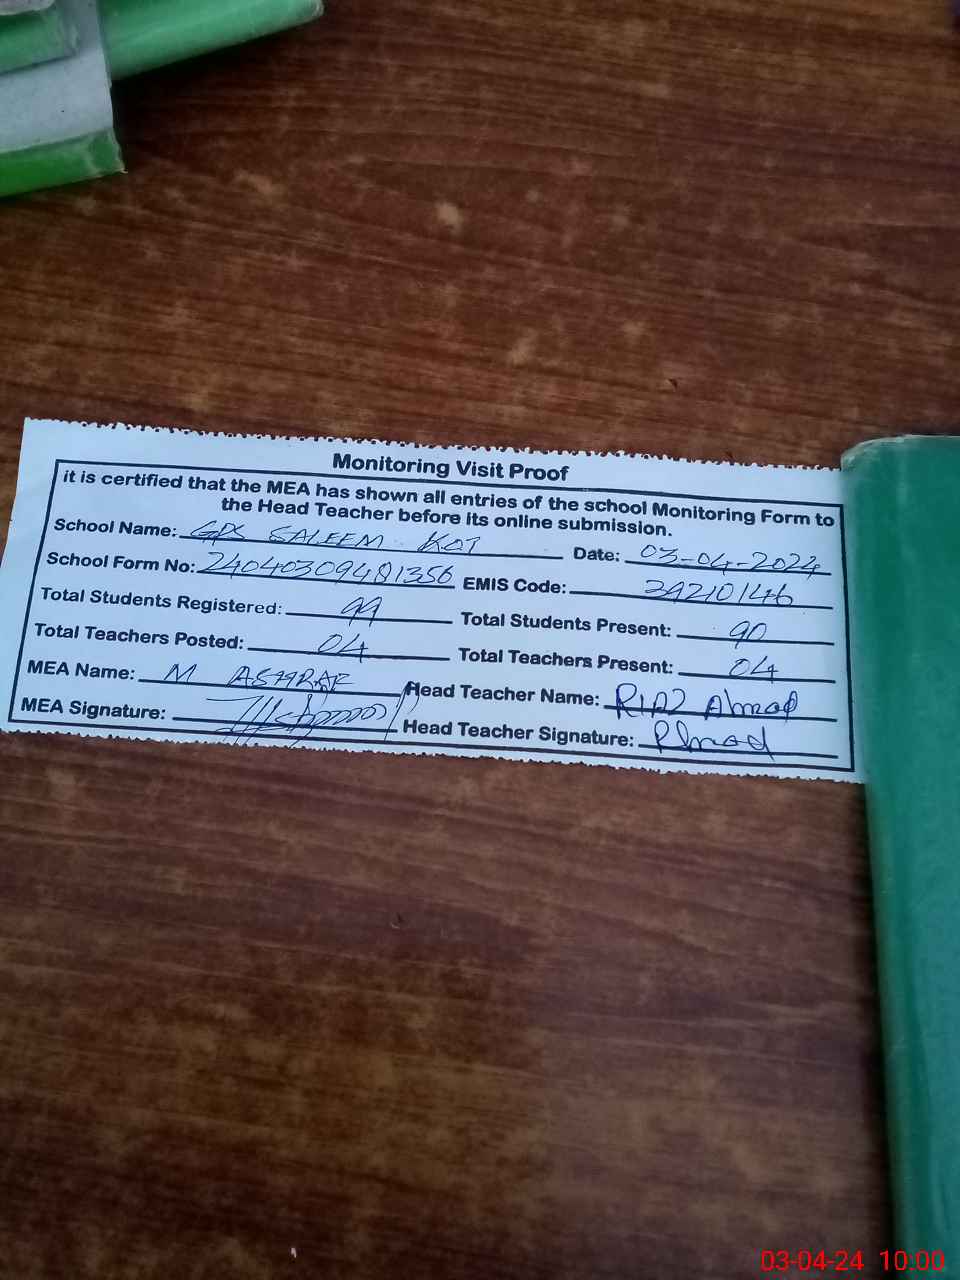 Monitoring Visit Proof
it is certified that the MEA has shown all entries of the school Monitoring Form to
the Head Teacher before its online submission.
School Name: GPS SALEEM KOT Date: 03-04-2024
School Form No: EMIS Code: 39210146
Total Students Registered: 99 Total Students Present: 90
Total Teachers Posted: 04 Total Teachers Present: 04
MEA Name: M ASHRAF Head Teacher Name: Riaz Ahmad
MEA Signature: Head Teacher Signature: RAhmad
03-04-24 10:00